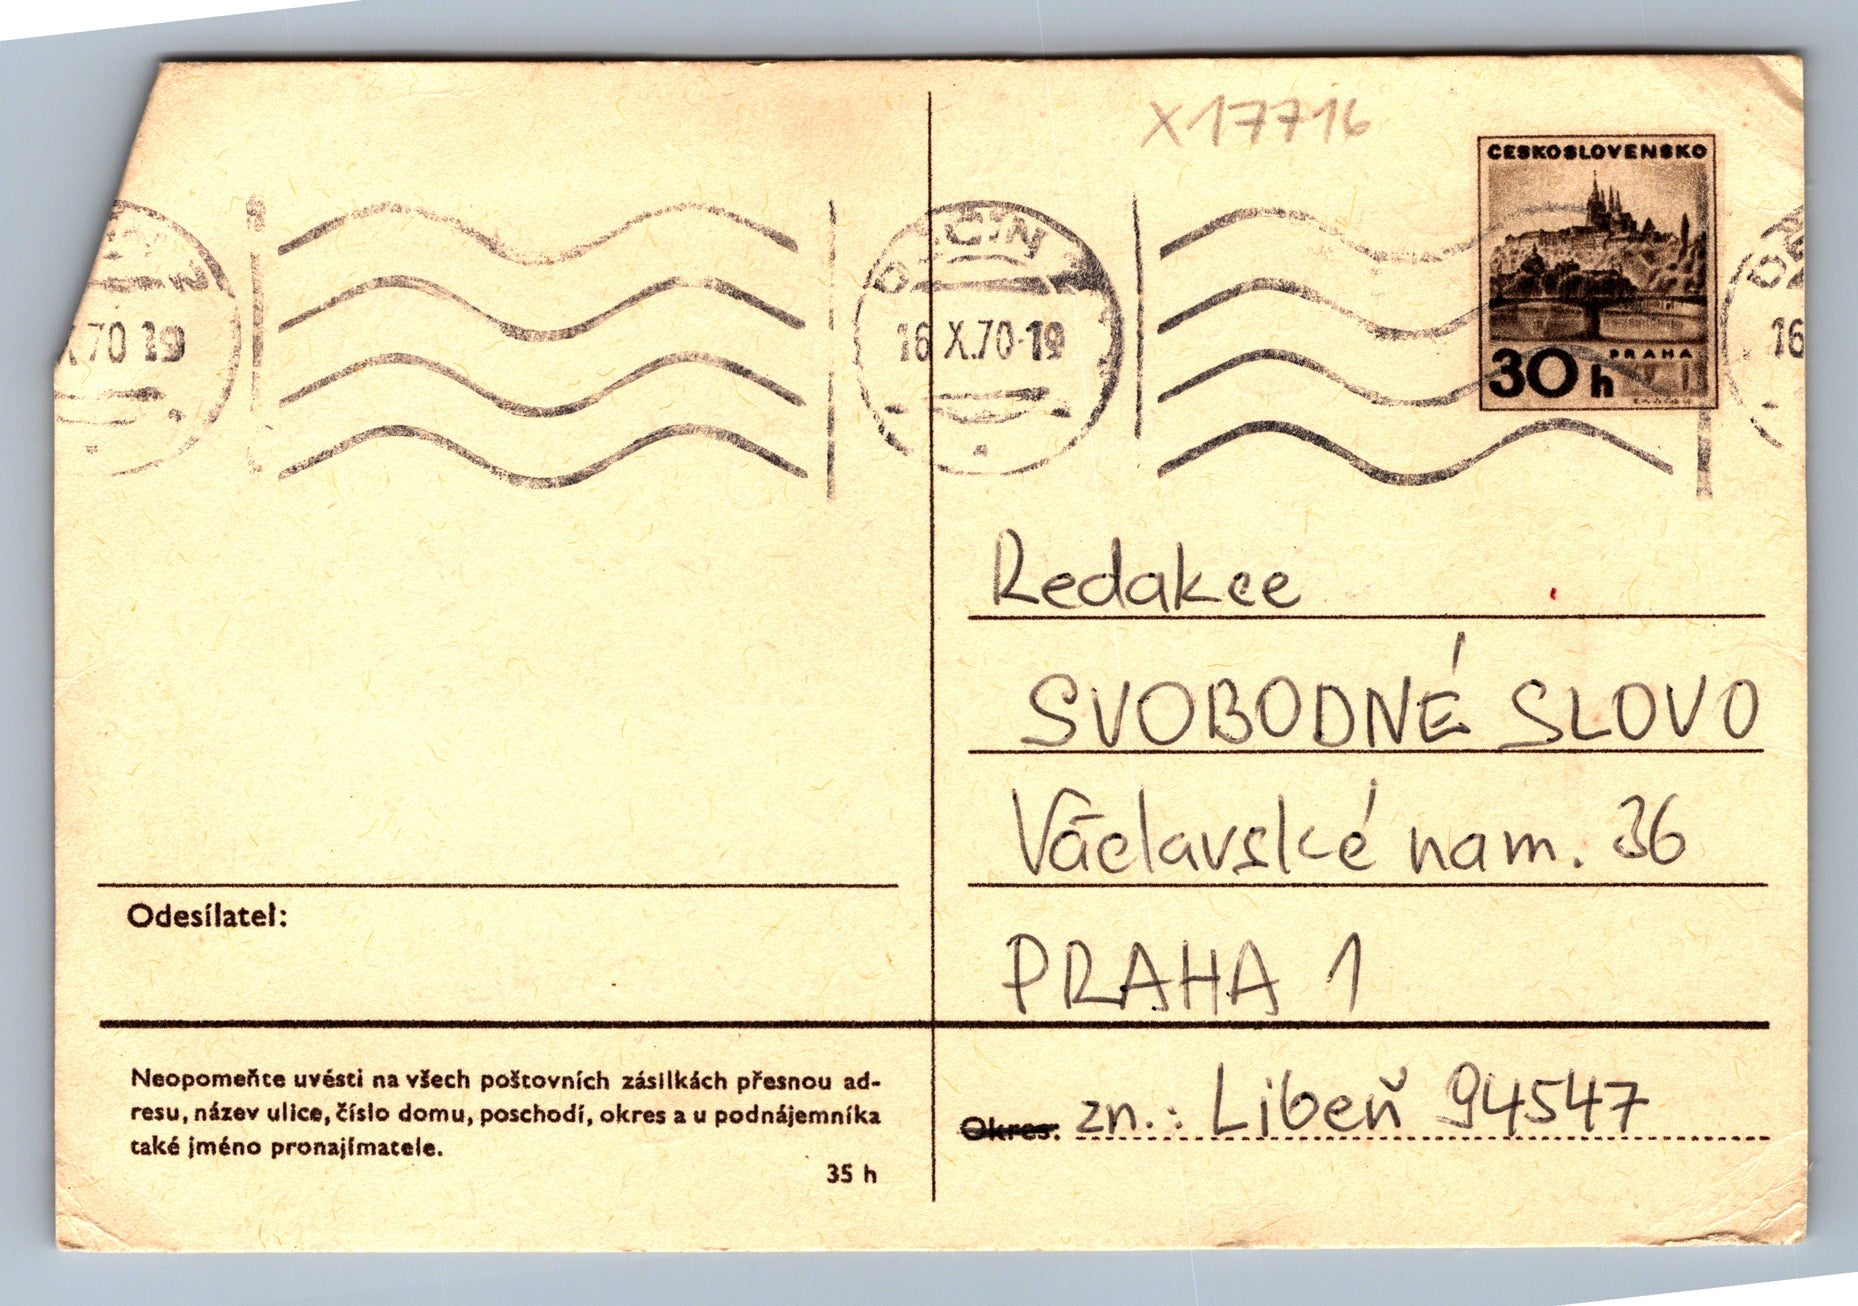 X17716
ČESKOSLOVENSKO
PRAHA
30 h
X.70 19
DĚČÍN
16 X.70-19
16
Redakce
SVOBODNÉ SLOVO
Václavské nam. 36
PRAHA 1
Odesílatel:
Neopomeňte uvésti na všech poštovních zásilkách přesnou ad-
resu, název ulice, číslo domu, poschodí, okres a u podnájemníka
také jméno pronajímatele.
35 h
Okres: zn.: Libeň 94547